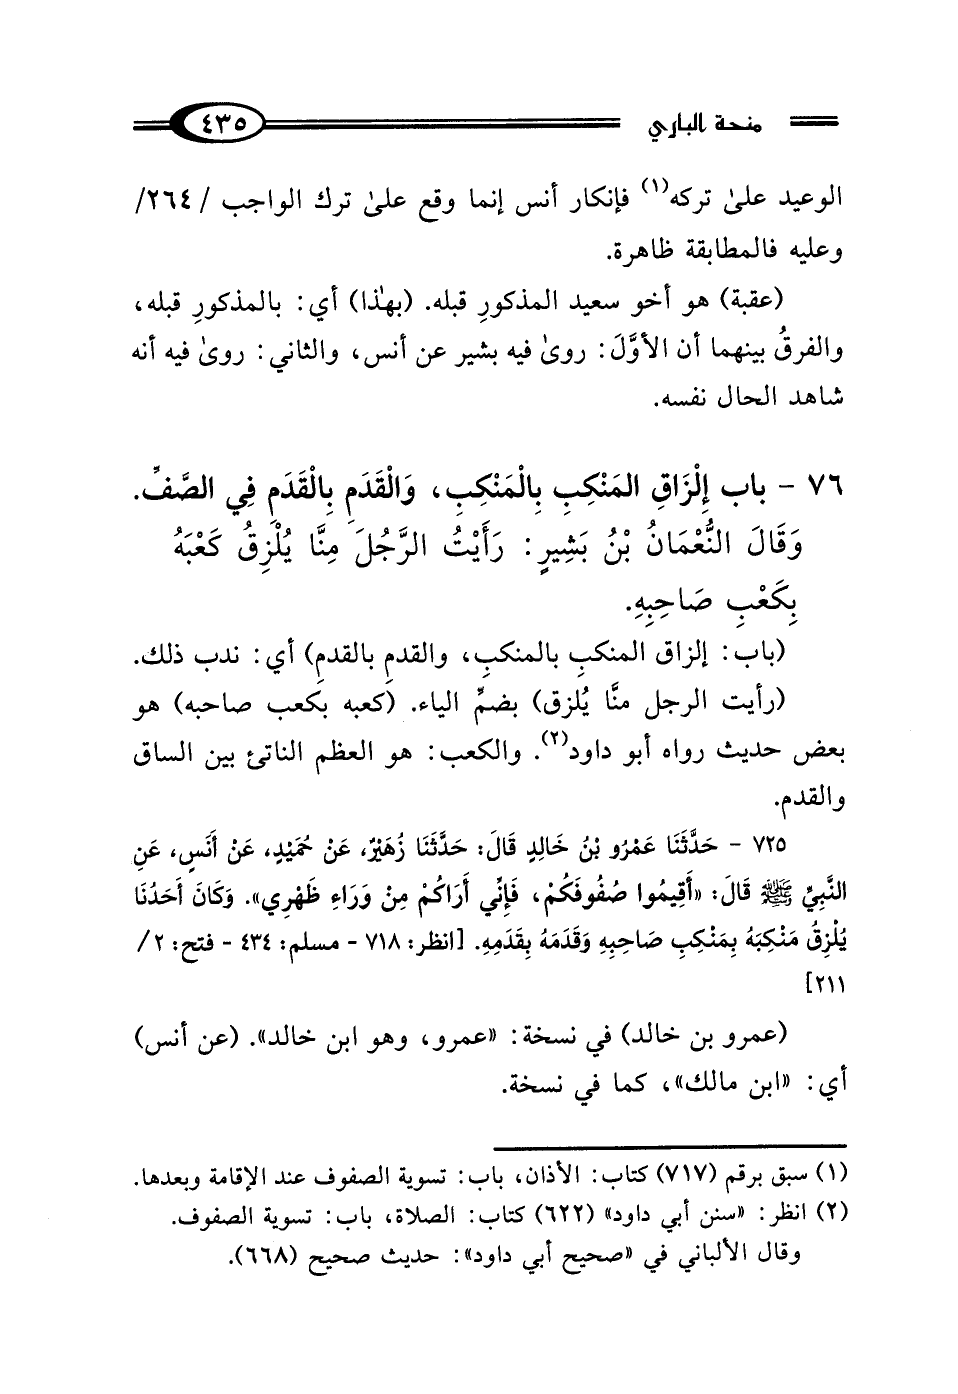 منحة الباري ٤٣٥
الوعيد علىٰ تركه(١) فإنكار أنس إنما وقع علىٰ ترك الواجب /٢٦٤/
وعليه فالمطابقة ظاهرة.
(عقبة) هو أخو سعيد المذكورِ قبله. (بهٰذا) أي: بالمذكورِ قبله،
والفرقُ بينهما أن الأوَّلَ: روىٰ فيه بشير عن أنس، والثاني: روىٰ فيه أنه
شاهد الحال نفسه.
٧٦ - باب إِلْزَاقِ المَنْكِبِ بِالْمَنْكِبِ، وَالْقَدَمِ بِالْقَدَمِ فِي الصَّفِّ.
وَقَالَ النُّعْمَانُ بْنُ بَشِيرٍ: رَأَيْتُ الرَّجُلَ مِنَّا يُلْزِقُ كَعْبَهُ
بِكَعْبِ صَاحِبِهِ.
(باب: إلزاق المنكبِ بالمنكبِ، والقدمِ بالقدمِ) أي: ندب ذلك.
(رأيت الرجل منَّا يُلزق) بضمِّ الياء. (كعبه بكعب صاحبه) هو
بعض حديث رواه أبو داود(٢). والكعب: هو العظم الناتئ بين الساق
والقدم.
٧٢٥ - حَدَّثَنَا عَمْرُو بْنُ خَالِدٍ قَالَ: حَدَّثَنَا زُهَيْرٌ، عَنْ حُمَيْدٍ، عَنْ أَنَسٍ، عَنِ
النَّبِيِّ ﷺ قَالَ: «أَقِيمُوا صُفُوفَكُمْ، فَإِنِّي أَرَاكُمْ مِنْ وَرَاءِ ظَهْرِي». وَكَانَ أَحَدُنَا
يُلْزِقُ مَنْكِبَهُ بِمَنْكِبِ صَاحِبِهِ وَقَدَمَهُ بِقَدَمِهِ. [انظر: ٧١٨ - مسلم: ٤٣٤ - فتح: ٢/
٢١١]
(عمرو بن خالد) في نسخة: «عمرو، وهو ابن خالد». (عن أنس)
أي: «ابن مالك»، كما في نسخة.
(١) سبق برقم (٧١٧) كتاب: الأذان، باب: تسوية الصفوف عند الإقامة وبعدها.
(٢) انظر: «سنن أبي داود» (٦٢٢) كتاب: الصلاة، باب: تسوية الصفوف.
وقال الألباني في «صحيح أبي داود»: حديث صحيح (٦٦٨).